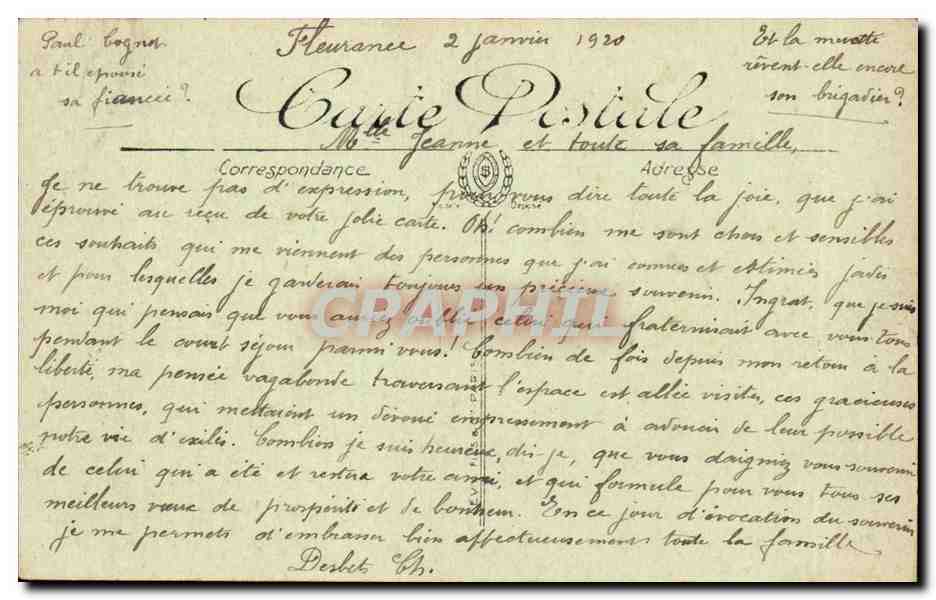 Paul Cognot
a t'il epousé
sa fiancée?
Fleurance 2 janvier 1920
Et la muette
rêvent-elle encore
son brigadier?
Carte Postale
Mlle Jeanne et toute sa famille,
Correspondance
Adresse
Je ne trouve pas d'expression, pour vous dire toute la joie, que j'ai
éprouvé au reçu de votre jolie carte. Oh! combien me sont chers et sensibles
ces souhaits qui me viennent des personnes que j'ai connues et estimées jadis
et pour lesquelles je garderai toujours un précieux souvenir. Ingrat, que je suis
moi qui pensais que vous auriez oublié celui qui fraternisait avec vous tous
pendant le court séjour parmi vous! Combien de fois depuis mon retour à la
liberté, ma pensée vagabonde traversant l'espace est allée visiter, ces gracieuses
personnes, qui mettaient un dévoué empressement à adoucir de leur possible
notre vie d'exilés. Combien je suis heureux, dis-je, que vous daigniez vous souvenir
de celui qui a été et restera votre ami, et qui formule pour vous tous ses
meilleurs vœux de prospérité et de bonheur. En ce jour d'évocation du souvenir
je me permets d'embrasser bien affectueusement toute la famille
Desbets Ch.
CPAPHIL